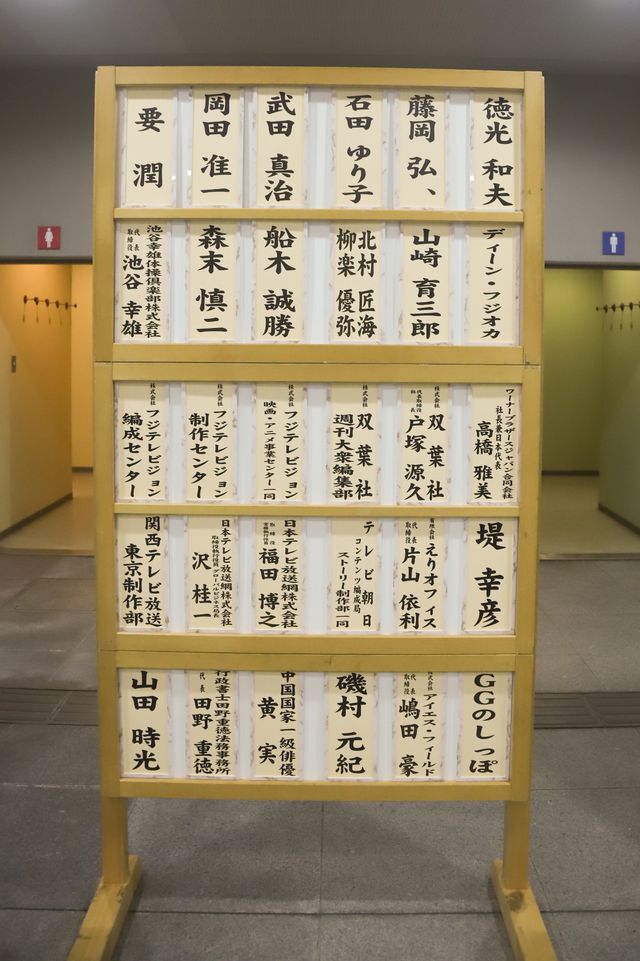 徳光 和夫
藤岡 弘、
石田 ゆり子
武田 真治
岡田 准一
要 潤
ディーン・フジオカ
山崎 育三郎
北村 匠海
柳楽 優弥
船木 誠勝
森末 慎二
池谷幸雄体操倶楽部株式会社
代表取締役 池谷 幸雄
ワーナーブラザースジャパン合同会社
社長兼日本代表
高橋 雅美
株式会社 双葉社
代表取締役社長 戸塚 源久
株式会社 双葉社
週刊大衆編集部
株式会社 フジテレビジョン
映画・アニメ事業センター一同
株式会社 フジテレビジョン
制作センター
株式会社 フジテレビジョン
編成センター
堤 幸彦
有限会社 えりオフィス
代表取締役 片山 依利
テレビ朝日
コンテンツ編成局
ストーリー制作部一同
日本テレビ放送網株式会社
福田 博之
日本テレビ放送網株式会社
取締役執行役員 グローバルビジネス局長
沢 桂一
関西テレビ放送
東京制作部
GGのしっぽ
株式会社 アイエス・フィールド
代表取締役 嶋田 豪
磯村 元紀
中国国家一級俳優
黄 実
行政書士田野重徳法務事務所
代表 田野 重徳
山田 時光